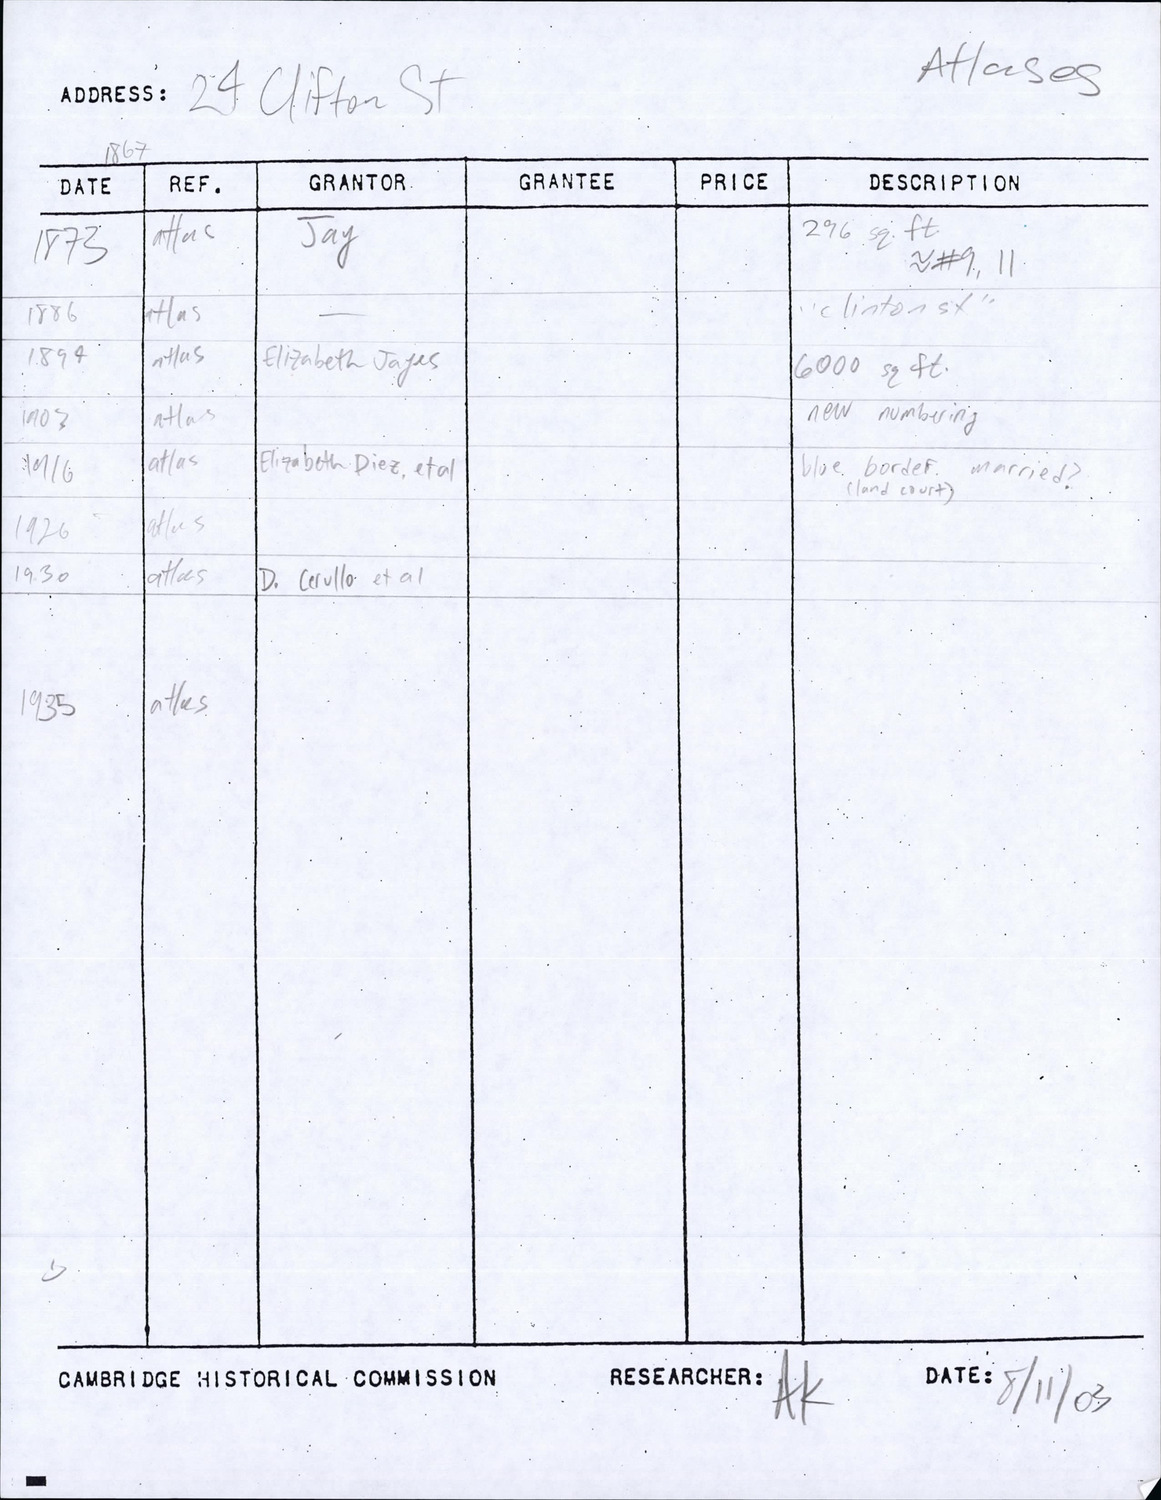 Atlases
ADDRESS: 24 Clifton St
1867
DATE REF. GRANTOR GRANTEE PRICE DESCRIPTION
1873 atlas Jay 296 sq. ft
≈#9, 11
1886 atlas — "clinton st"
1894 atlas Elizabeth Jayes 6000 sq ft.
1903 atlas new numbering
1916 atlas Elizabeth Diez, et al blue border. married?
(land court)
1926 atlas
1930 atlas D. Cerullo et al
1935 atlas
CAMBRIDGE HISTORICAL COMMISSION RESEARCHER: AK DATE: 8/11/03